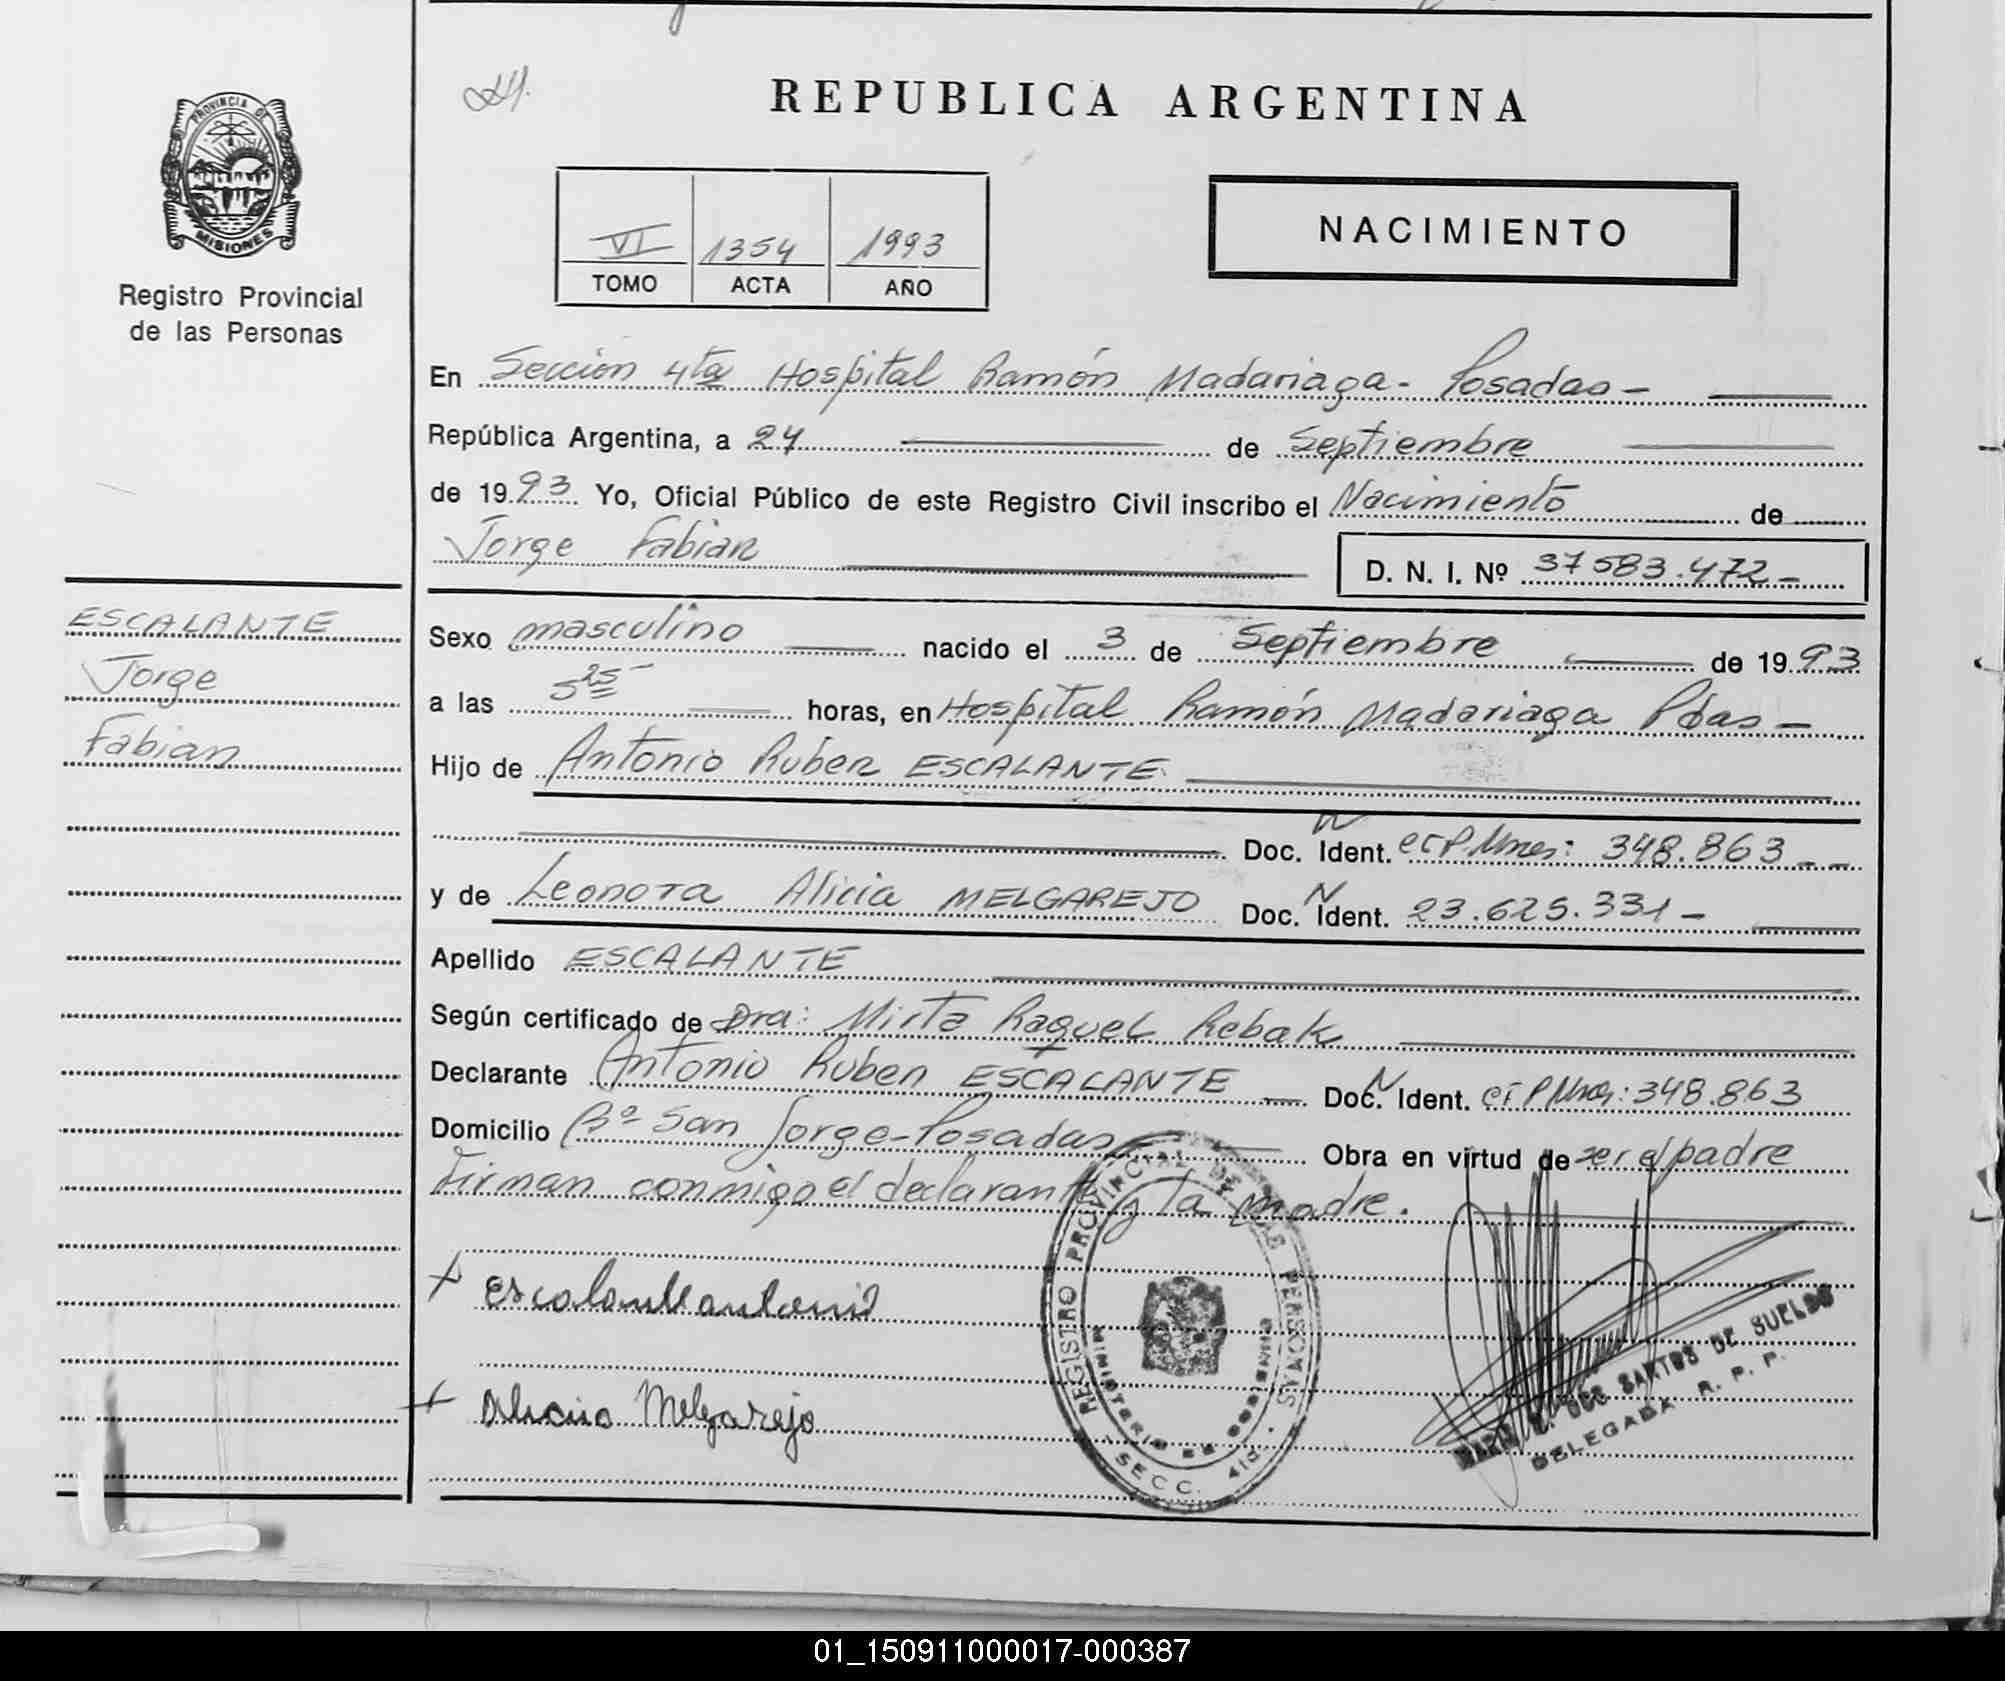 REPUBLICA ARGENTINA
PROVINCIA DE
MISIONES
Registro Provincial
de las Personas
VI 1354 1993
TOMO ACTA AÑO
NACIMIENTO
En Sección 4ta Hospital Ramón Madariaga - Posadas -
República Argentina, a 24 de Septiembre
de 1993 Yo, Oficial Público de este Registro Civil inscribo el Nacimiento de
Jorge Fabian D. N. I. Nº 37583.472-
ESCALANTE
Jorge
Fabian
Sexo masculino nacido el 3 de Septiembre de 1993
a las 5 25 horas, en Hospital Ramón Madariaga Pdas -
Hijo de Antonio Ruben ESCALANTE
Doc. Ident. 348.863 - -
y de Leonora Alicia MELGAREJO Doc. Ident. 23.625.331 -
Apellido ESCALANTE
Según certificado de Dra: Mirta Raquel Rebak
Declarante Antonio Ruben ESCALANTE - Doc. Ident. 348.863
Domicilio Bº San Jorge - Posadas - Obra en virtud de ser el padre
Firman conmigo el declarante y la madre.
REGISTRO PROVINCIAL DE LAS PERSONAS
MINISTERIO DE GOBIERNO
SECC. 4ta.
Escalante antonio
Alicia Melgarejo
DOS SANTOS DE SUELDO
DELEGADA R. P. P.
01_150911000017-000387